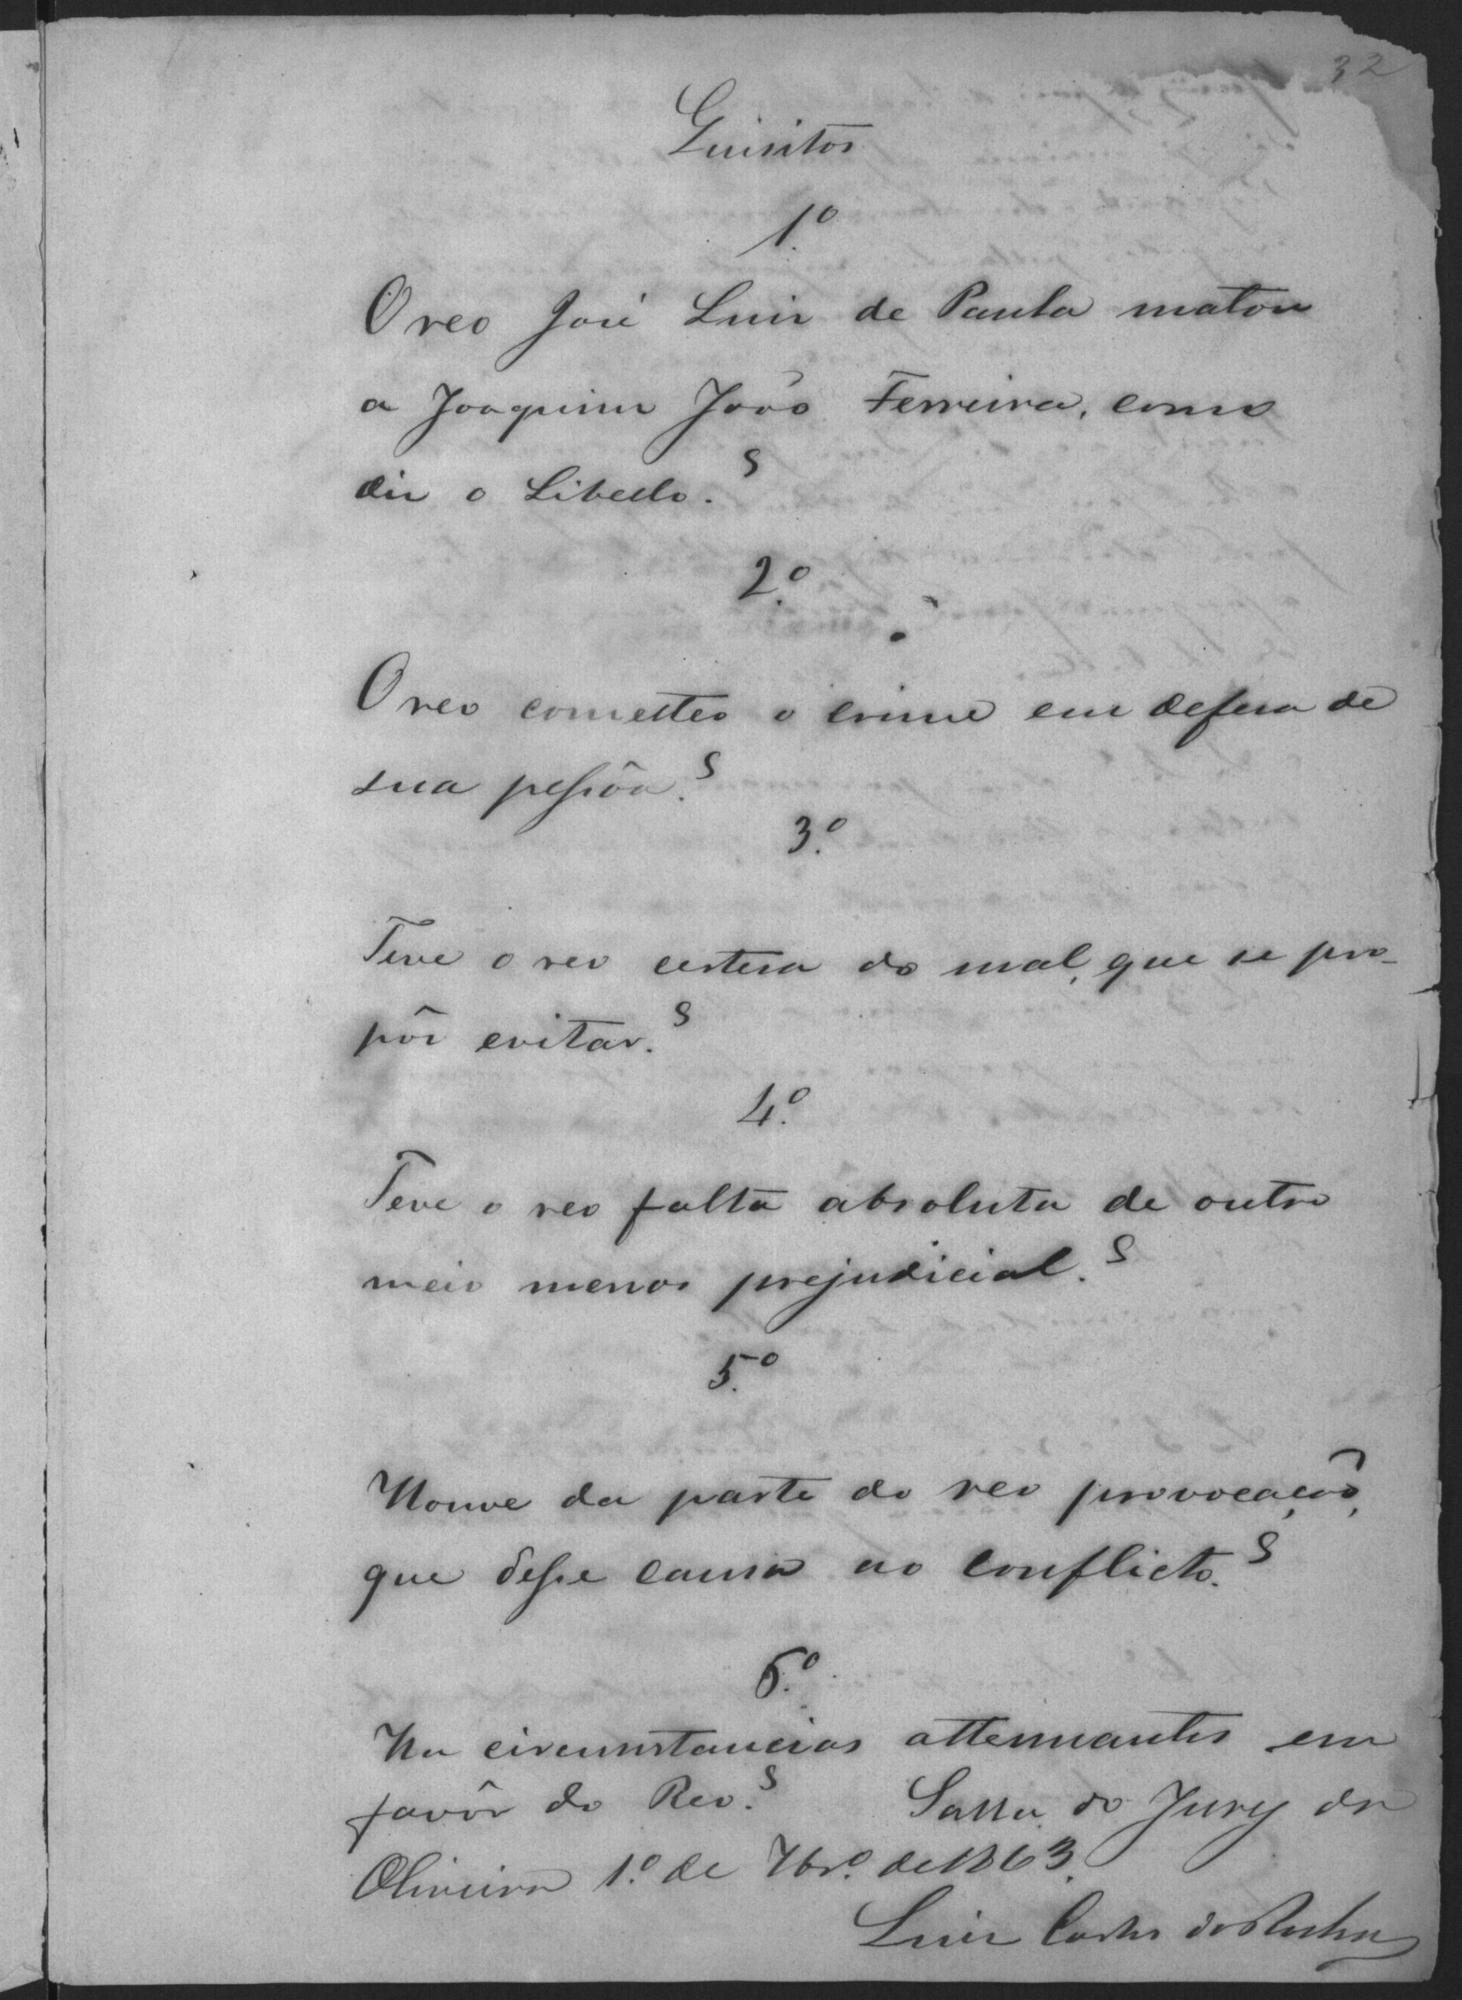 32
Quisitos
1.º
O reo José Luiz de Paula matou
a Joaquim João Ferreira, como
diz o Libello.?
2.º
O reo cometteo o crime em defesa de
sua pessôa.?
3.º
Teve o reo certesa do mal, que se pro-
pôz evitar.?
4.º
Teve o reo falta absoluta de outro
meio menos prejudicial.?
5.º
Houve da parte do reo provocação,
que desse causa ao conflicto.?
6.º
Ha circumstancias attenuantes em
favôr do Reo.? Salla do Jury da
Oliveira 1.º de 7br.º de 1863.
Luiz Carlos da Rocha